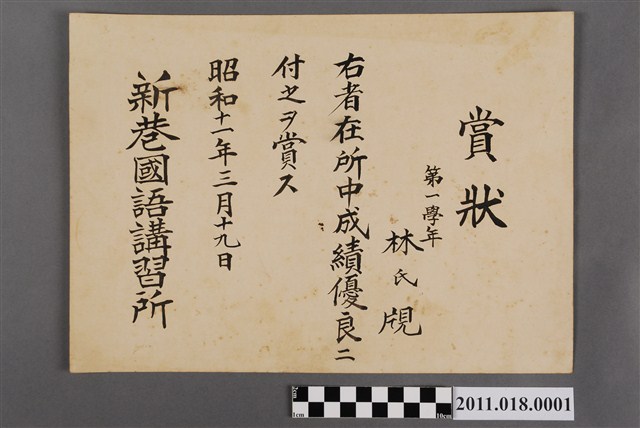 賞狀
第一學年
林氏覕
右者在所中成績優良ニ
付之ヲ賞ス
昭和十一年三月十九日
新巷國語講習所
2cm
1cm
10cm
2011.018.0001